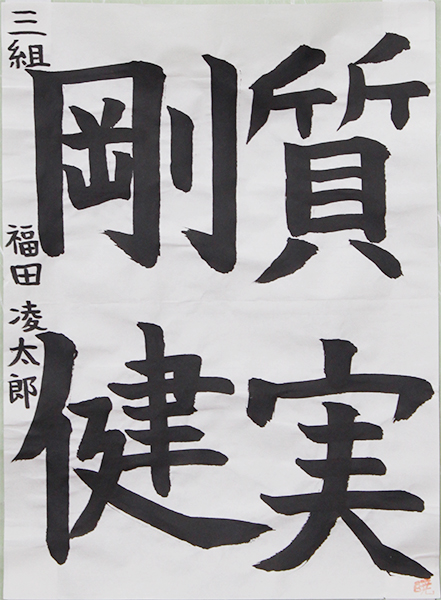 質実
剛健
三組 福田 凌太郎